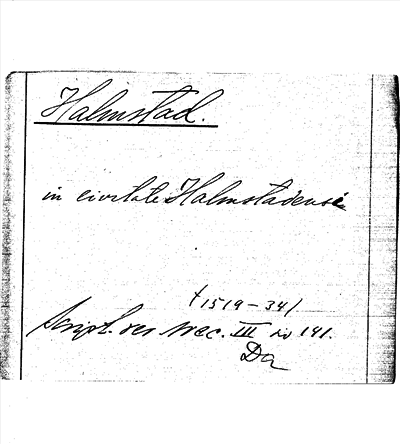 Halmstad.
in civitate Halmstadensi
(1519-34)
Script. rer svec. III no 141.
Da